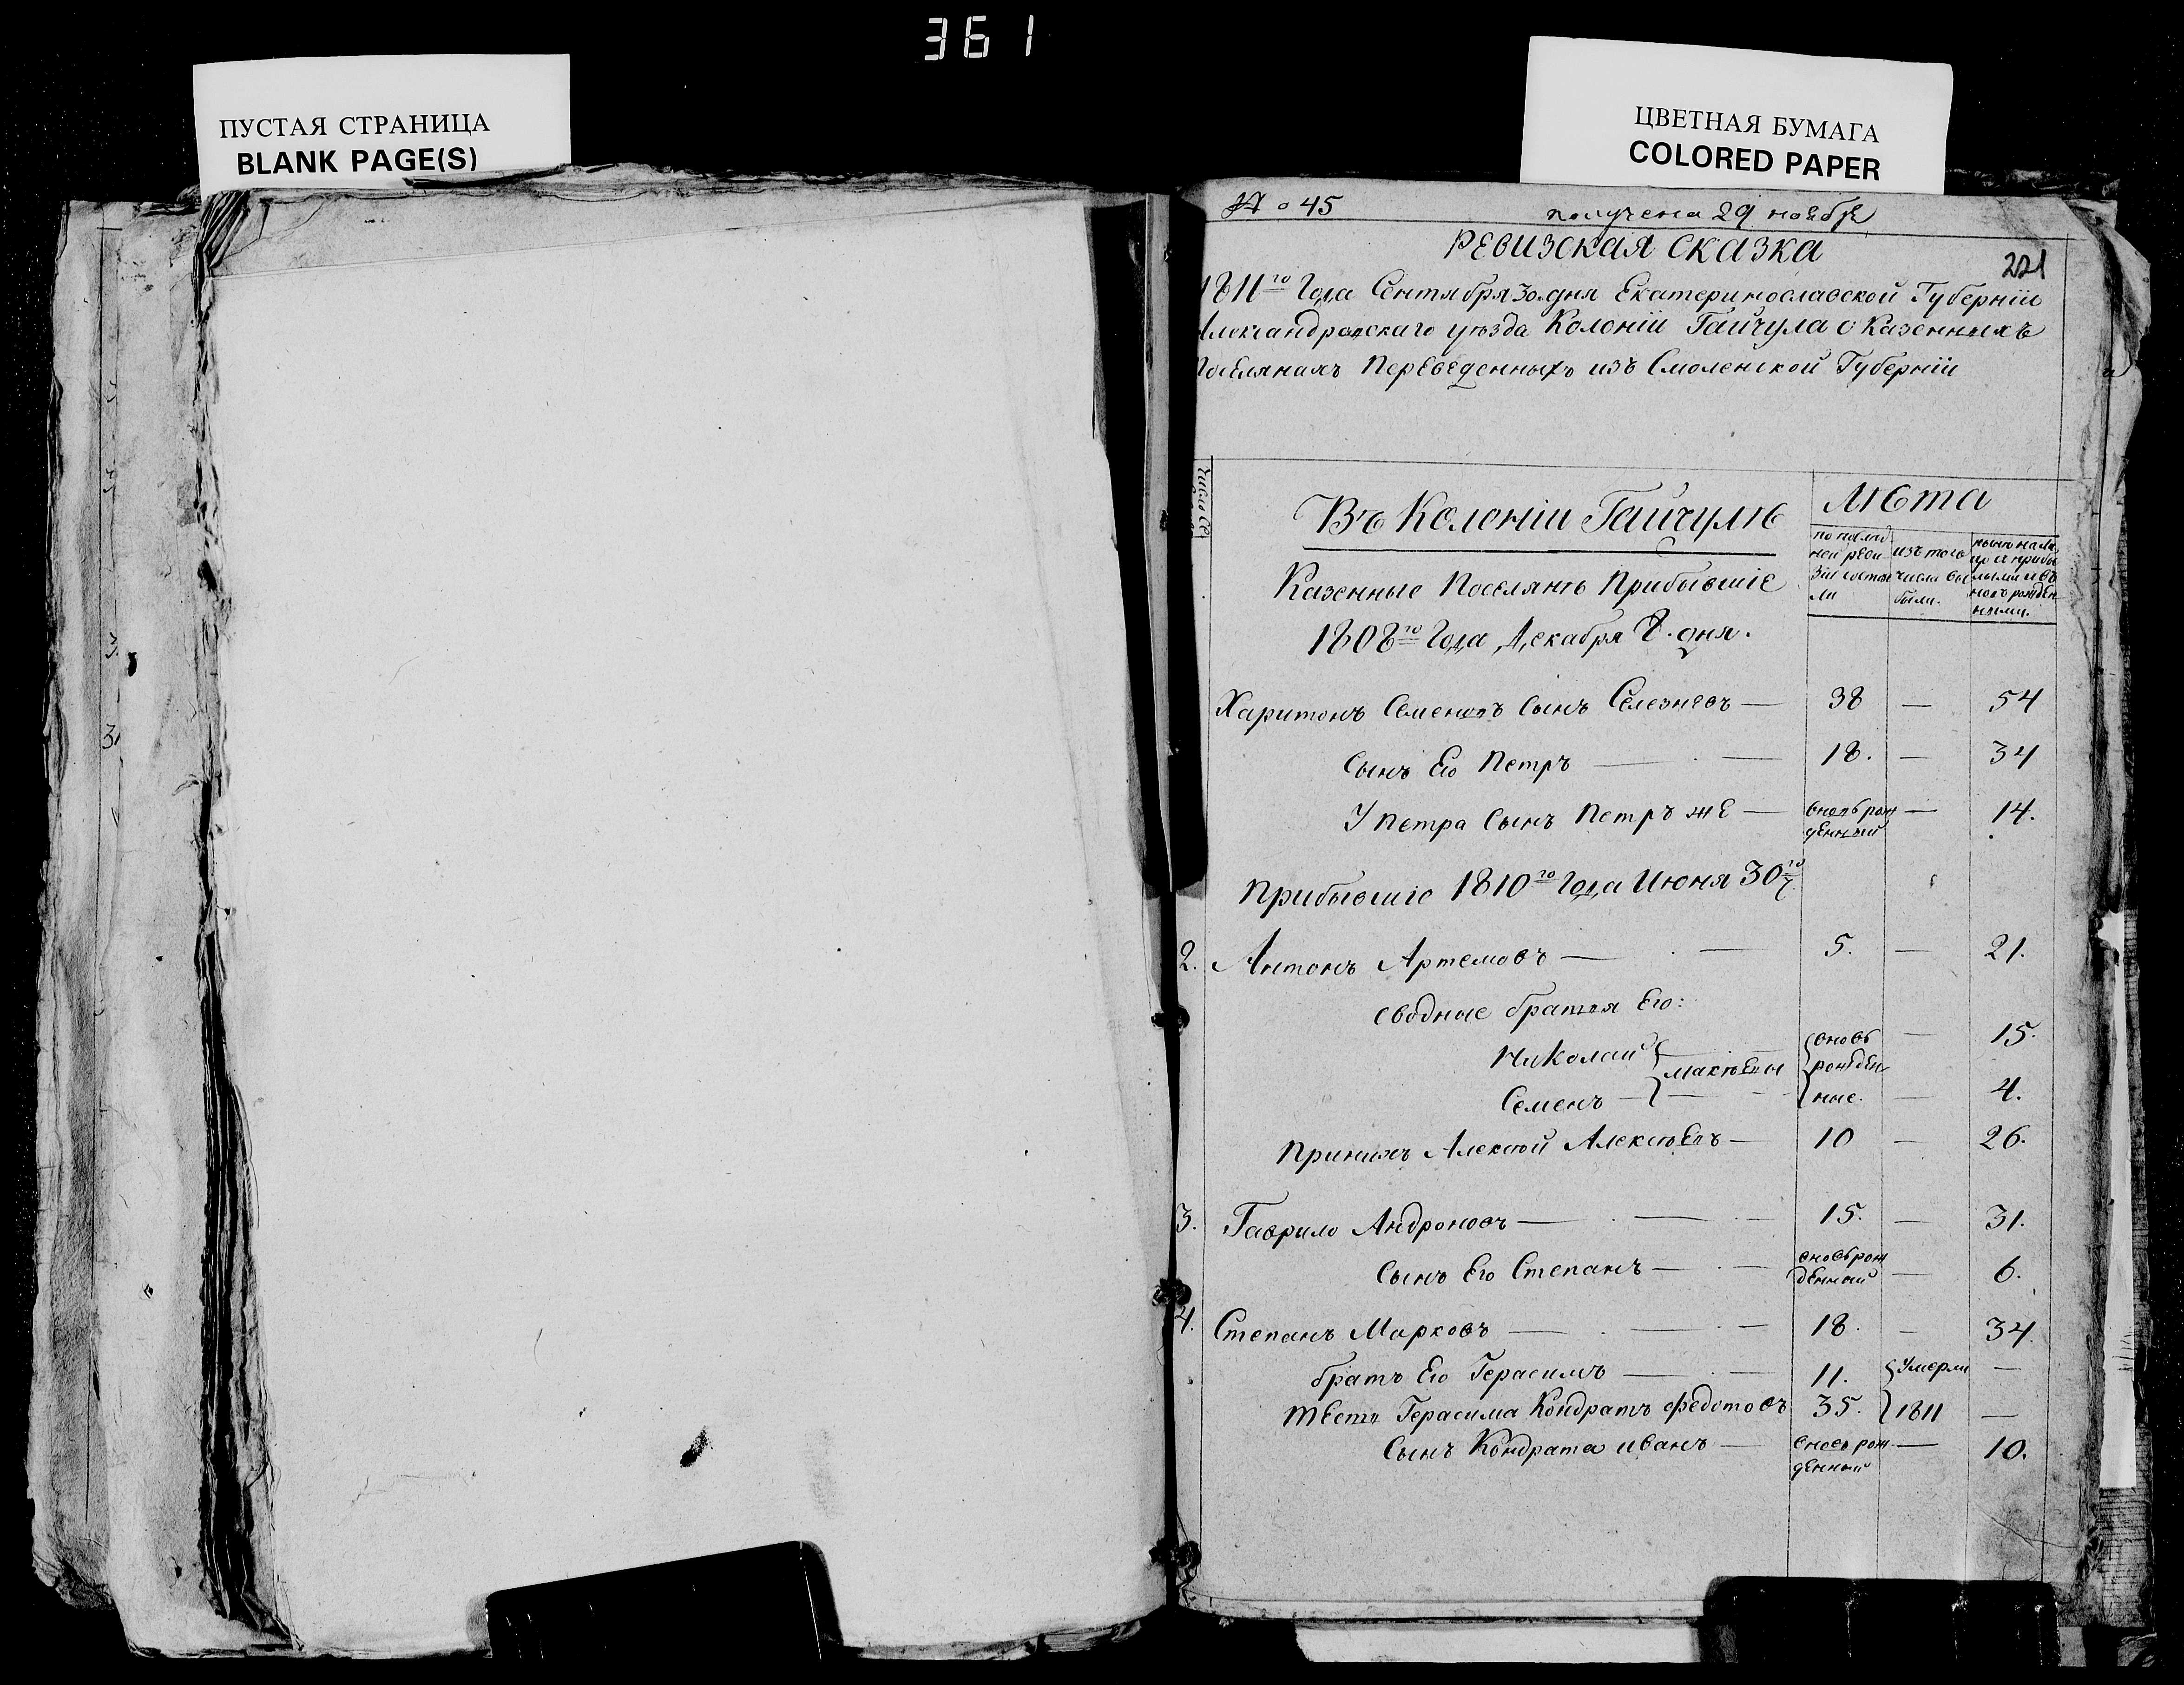 361
ПУСТАЯ СТРАНИЦА
BLANK PAGE(S)
ЦВЕТНАЯ БУМАГА
COLORED PAPER
№ 45
получена 29 ноября
РЕВИЗСКАЯ СКАЗКА
221
1811го Года Сентября 30. дня Екатеринославской Губернiи
Александровскаго уѣзда Колонiи Гайчула о Казенныхъ
Поселянахъ Переведенныхъ изъ Смоленской Губернiи
Число
Въ Колонiи Гайчулѣ
Лѣта
Казенные Поселянѣ Прибывшiе
1808го Года Декабря 8. дня.
по послѣд
ней реви
зiи состоя
ли
изъ того
числа вы
были.
нынѣ на ли
цо съ прибы
лыми и въ
новь рожден
ными.
Харитонъ Семеновъ Сынъ Селезневъ — 38 — 54
Сынъ Его Петръ — 18. — 34
У Петра Сынъ Петръ же — вновь рож
денный — 14.
Прибывшiе 1810го Года Июня 30го
2. Антонъ Артемовъ — 5. — 21.
сводные братья Его:
Николай — Макѣевы вновь — 15.
рожден
Семенъ — ные. — 4.
Примихъ Алексѣй Алексѣевъ — 10 — 26.
3. Гаврило Андроновъ — 15. — 31.
Сынъ Его Степанъ — вновь рож
денный — 6.
4. Степанъ Марковъ — 18. — 34.
братъ Его Герасимъ — 11. Умерли —
тесть Герасима Кондратъ Федотовъ 35. 1811 —
Сынъ Кондрата иванъ — вновь рож
денный — 10.